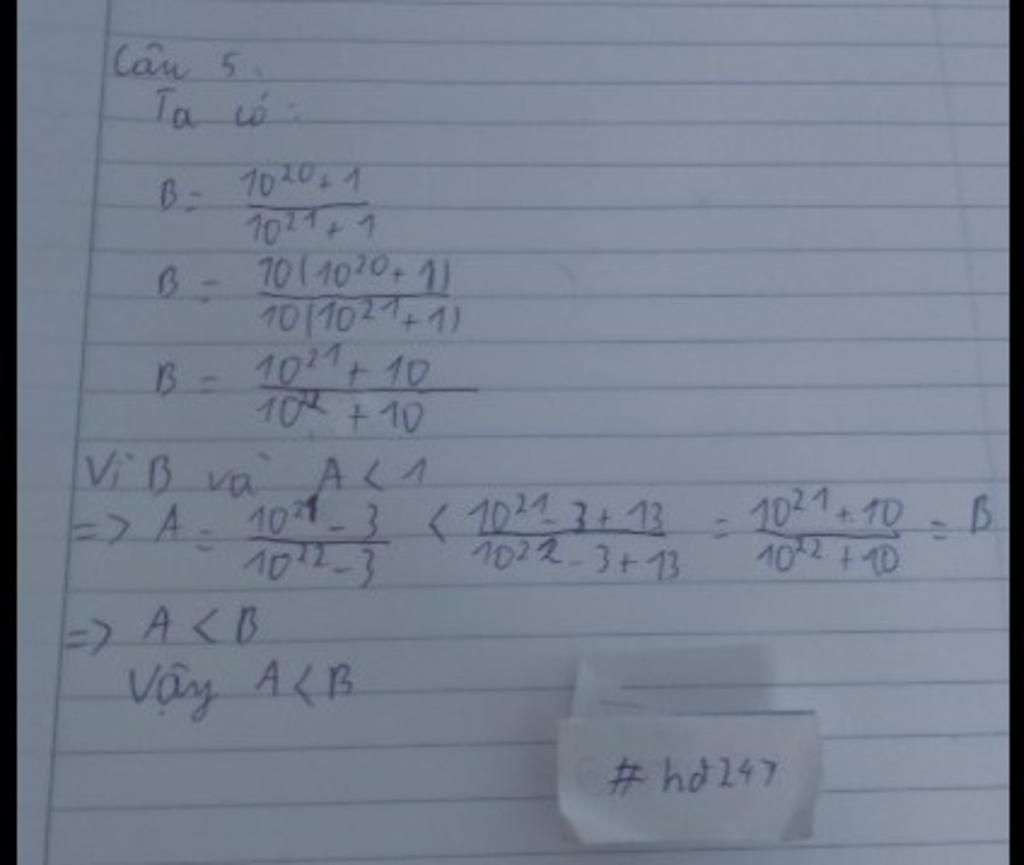 Câu 5.
Ta có:
B = \frac{10^{20} + 1}{10^{21} + 1}
B = \frac{10(10^{20} + 1)}{10(10^{21} + 1)}
B = \frac{10^{21} + 10}{10^{22} + 10}
Vì B và A < 1
=> A = \frac{10^{21} - 3}{10^{22} - 3} < \frac{10^{21} - 3 + 13}{10^{22} - 3 + 13} = \frac{10^{21} + 10}{10^{22} + 10} = B
=> A < B
Vậy A < B
#hd247